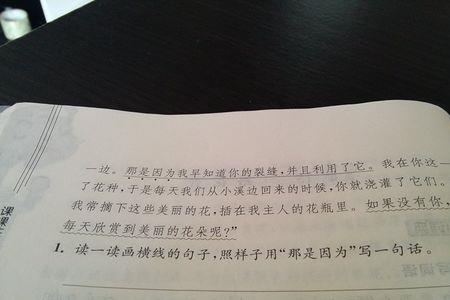 一边。那是因为我早知道你的裂缝,并且利用了它。我在你这一
了花种,于是每天我们从小溪边回来的时候,你就浇灌了它们。
我常摘下这些美丽的花,插在我主人的花瓶里。如果没有你,
每天欣赏到美丽的花朵呢?”
1. 读一读画横线的句子,照样子用“那是因为”写一句话。
课课